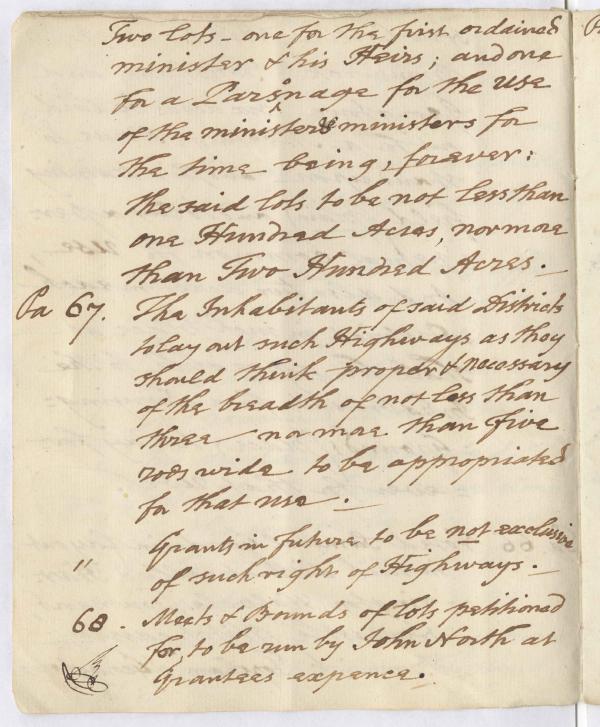 Two lots - one for the first ordained
minister & his Heirs; and one
for a Parsonage for the use
of the minister or ministers for
the time being, forever:
the said lots to be not less than
one Hundred Acres, nor more
than Two Hundred Acres. -
Pa 67. The Inhabitants of said Districts
to lay out such Highways as they
should think proper & necessary
of the breadth of not less than
three nor more than five
rods wide to be appropriated
for that use. -
Grants in future to be not exclusive
" of such right of Highways. -
68. Meets & Bounds of lots petitioned
for, to be run by John North at
Grantees expence.